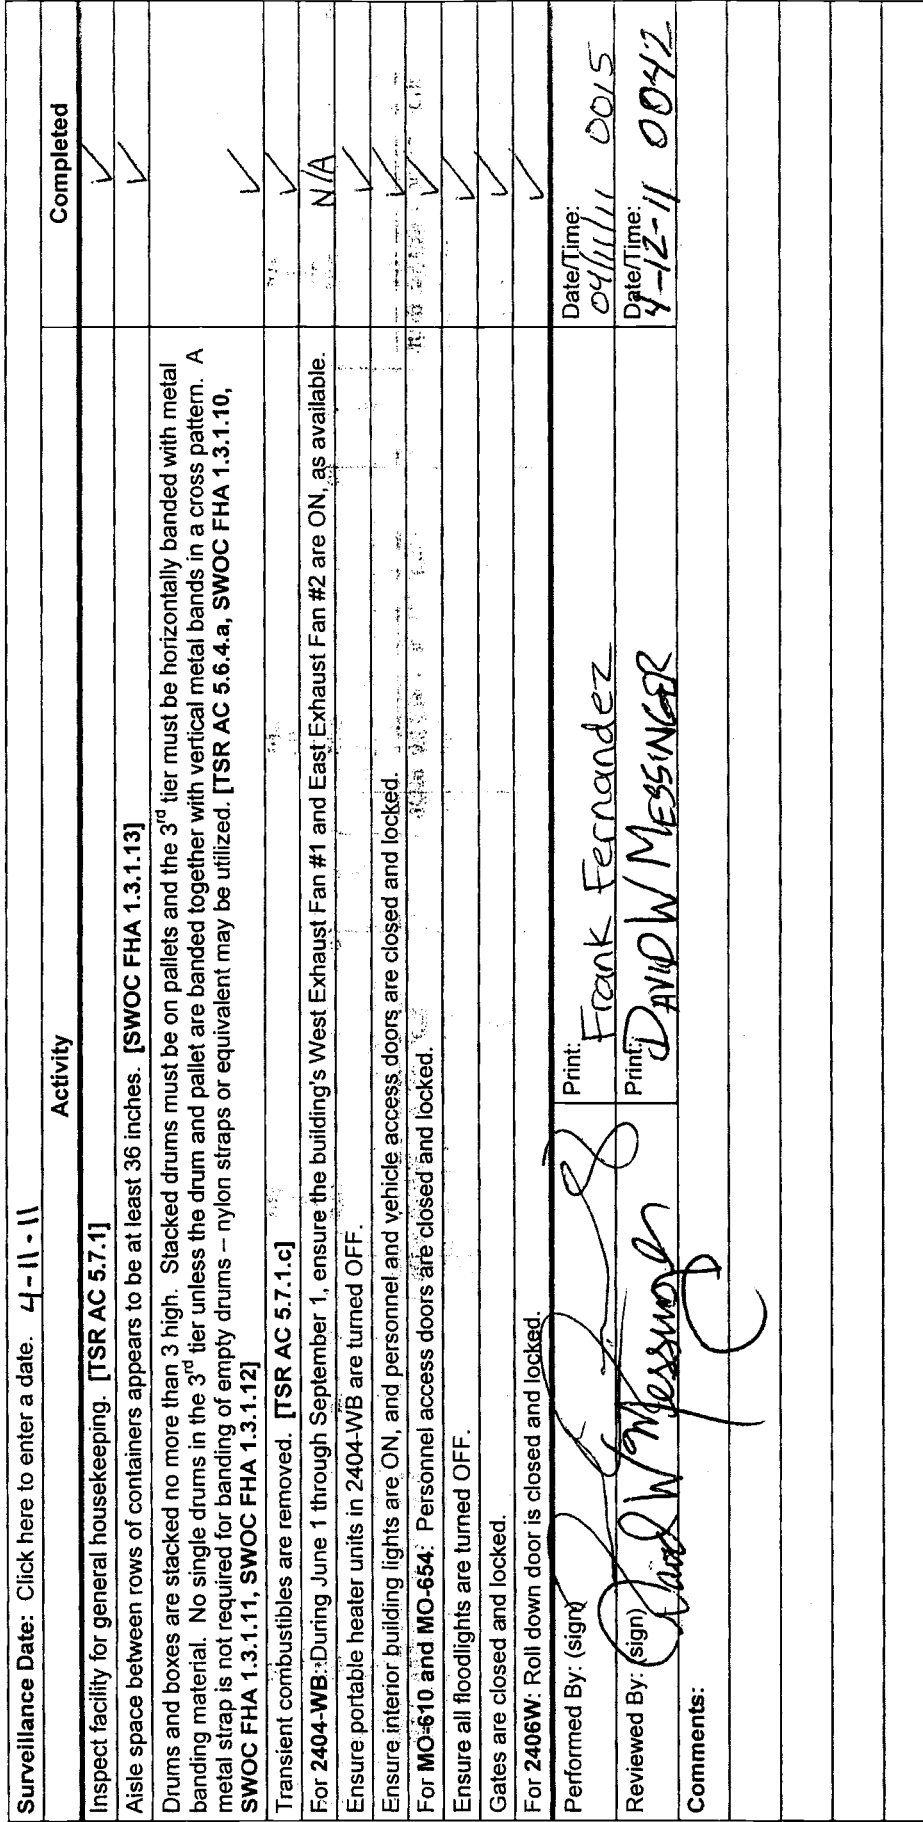 Surveillance Date: Click here to enter a date. 4-11-11
Activity
Completed
Inspect facility for general housekeeping. [TSR AC 5.7.1] ✓
Aisle space between rows of containers appears to be at least 36 inches. [SWOC FHA 1.3.1.13] ✓
Drums and boxes are stacked no more than 3 high. Stacked drums must be on pallets and the 3rd tier must be horizontally banded with metal
banding material. No single drums in the 3rd tier unless the drum and pallet are banded together with vertical metal bands in a cross pattern. A
metal strap is not required for banding of empty drums -- nylon straps or equivalent may be utilized. [TSR AC 5.6.4.a, SWOC FHA 1.3.1.10,
SWOC FHA 1.3.1.11, SWOC FHA 1.3.1.12] ✓
Transient combustibles are removed. [TSR AC 5.7.1.c] ✓
For 2404-WB: During June 1 through September 1, ensure the building's West Exhaust Fan #1 and East Exhaust Fan #2 are ON, as available. N/A
Ensure portable heater units in 2404-WB are turned OFF. ✓
Ensure interior building lights are ON, and personnel and vehicle access doors are closed and locked. ✓
For MO-610 and MO-654: Personnel access doors are closed and locked. ✓
Ensure all floodlights are turned OFF. ✓
Gates are closed and locked. ✓
For 2406W: Roll down door is closed and locked. ✓
Performed By: (sign) Print: Frank Fernandez Date/Time: 04/11/11 0015
Reviewed By: (sign) David W Messinger Print: DAVID W MESSINGER Date/Time: 4-12-11 0042
Comments: